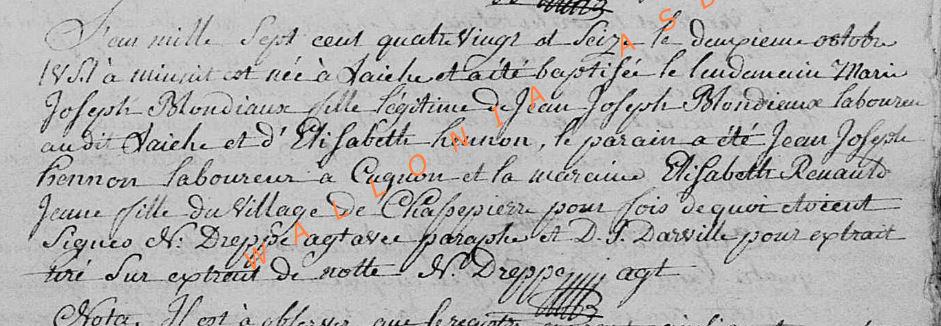 L'an mille Sept cent quatre vingt et Seize le deuxieme octobre
V.S. à minuit est née à Laiche et a été baptisée le lendemain Marie
Joseph Blondiaux fille légitime de Jean Joseph Blondieux laboureur
au dit Laiche et d'Elisabeth hennon, le parain a été Jean Joseph
hennon laboureur à Cugnon et la maraine Elisabeth Renauld
Jeune fille du Village de Chassepierre pour fois de quoi etoient
Signés N: Dreppe agt avec paraphe et D. J. Darville pour extrait
tiré Sur extrait de notte N. Dreppe agt
Nota. Il est à observer que le registre
WALLONIA ASD